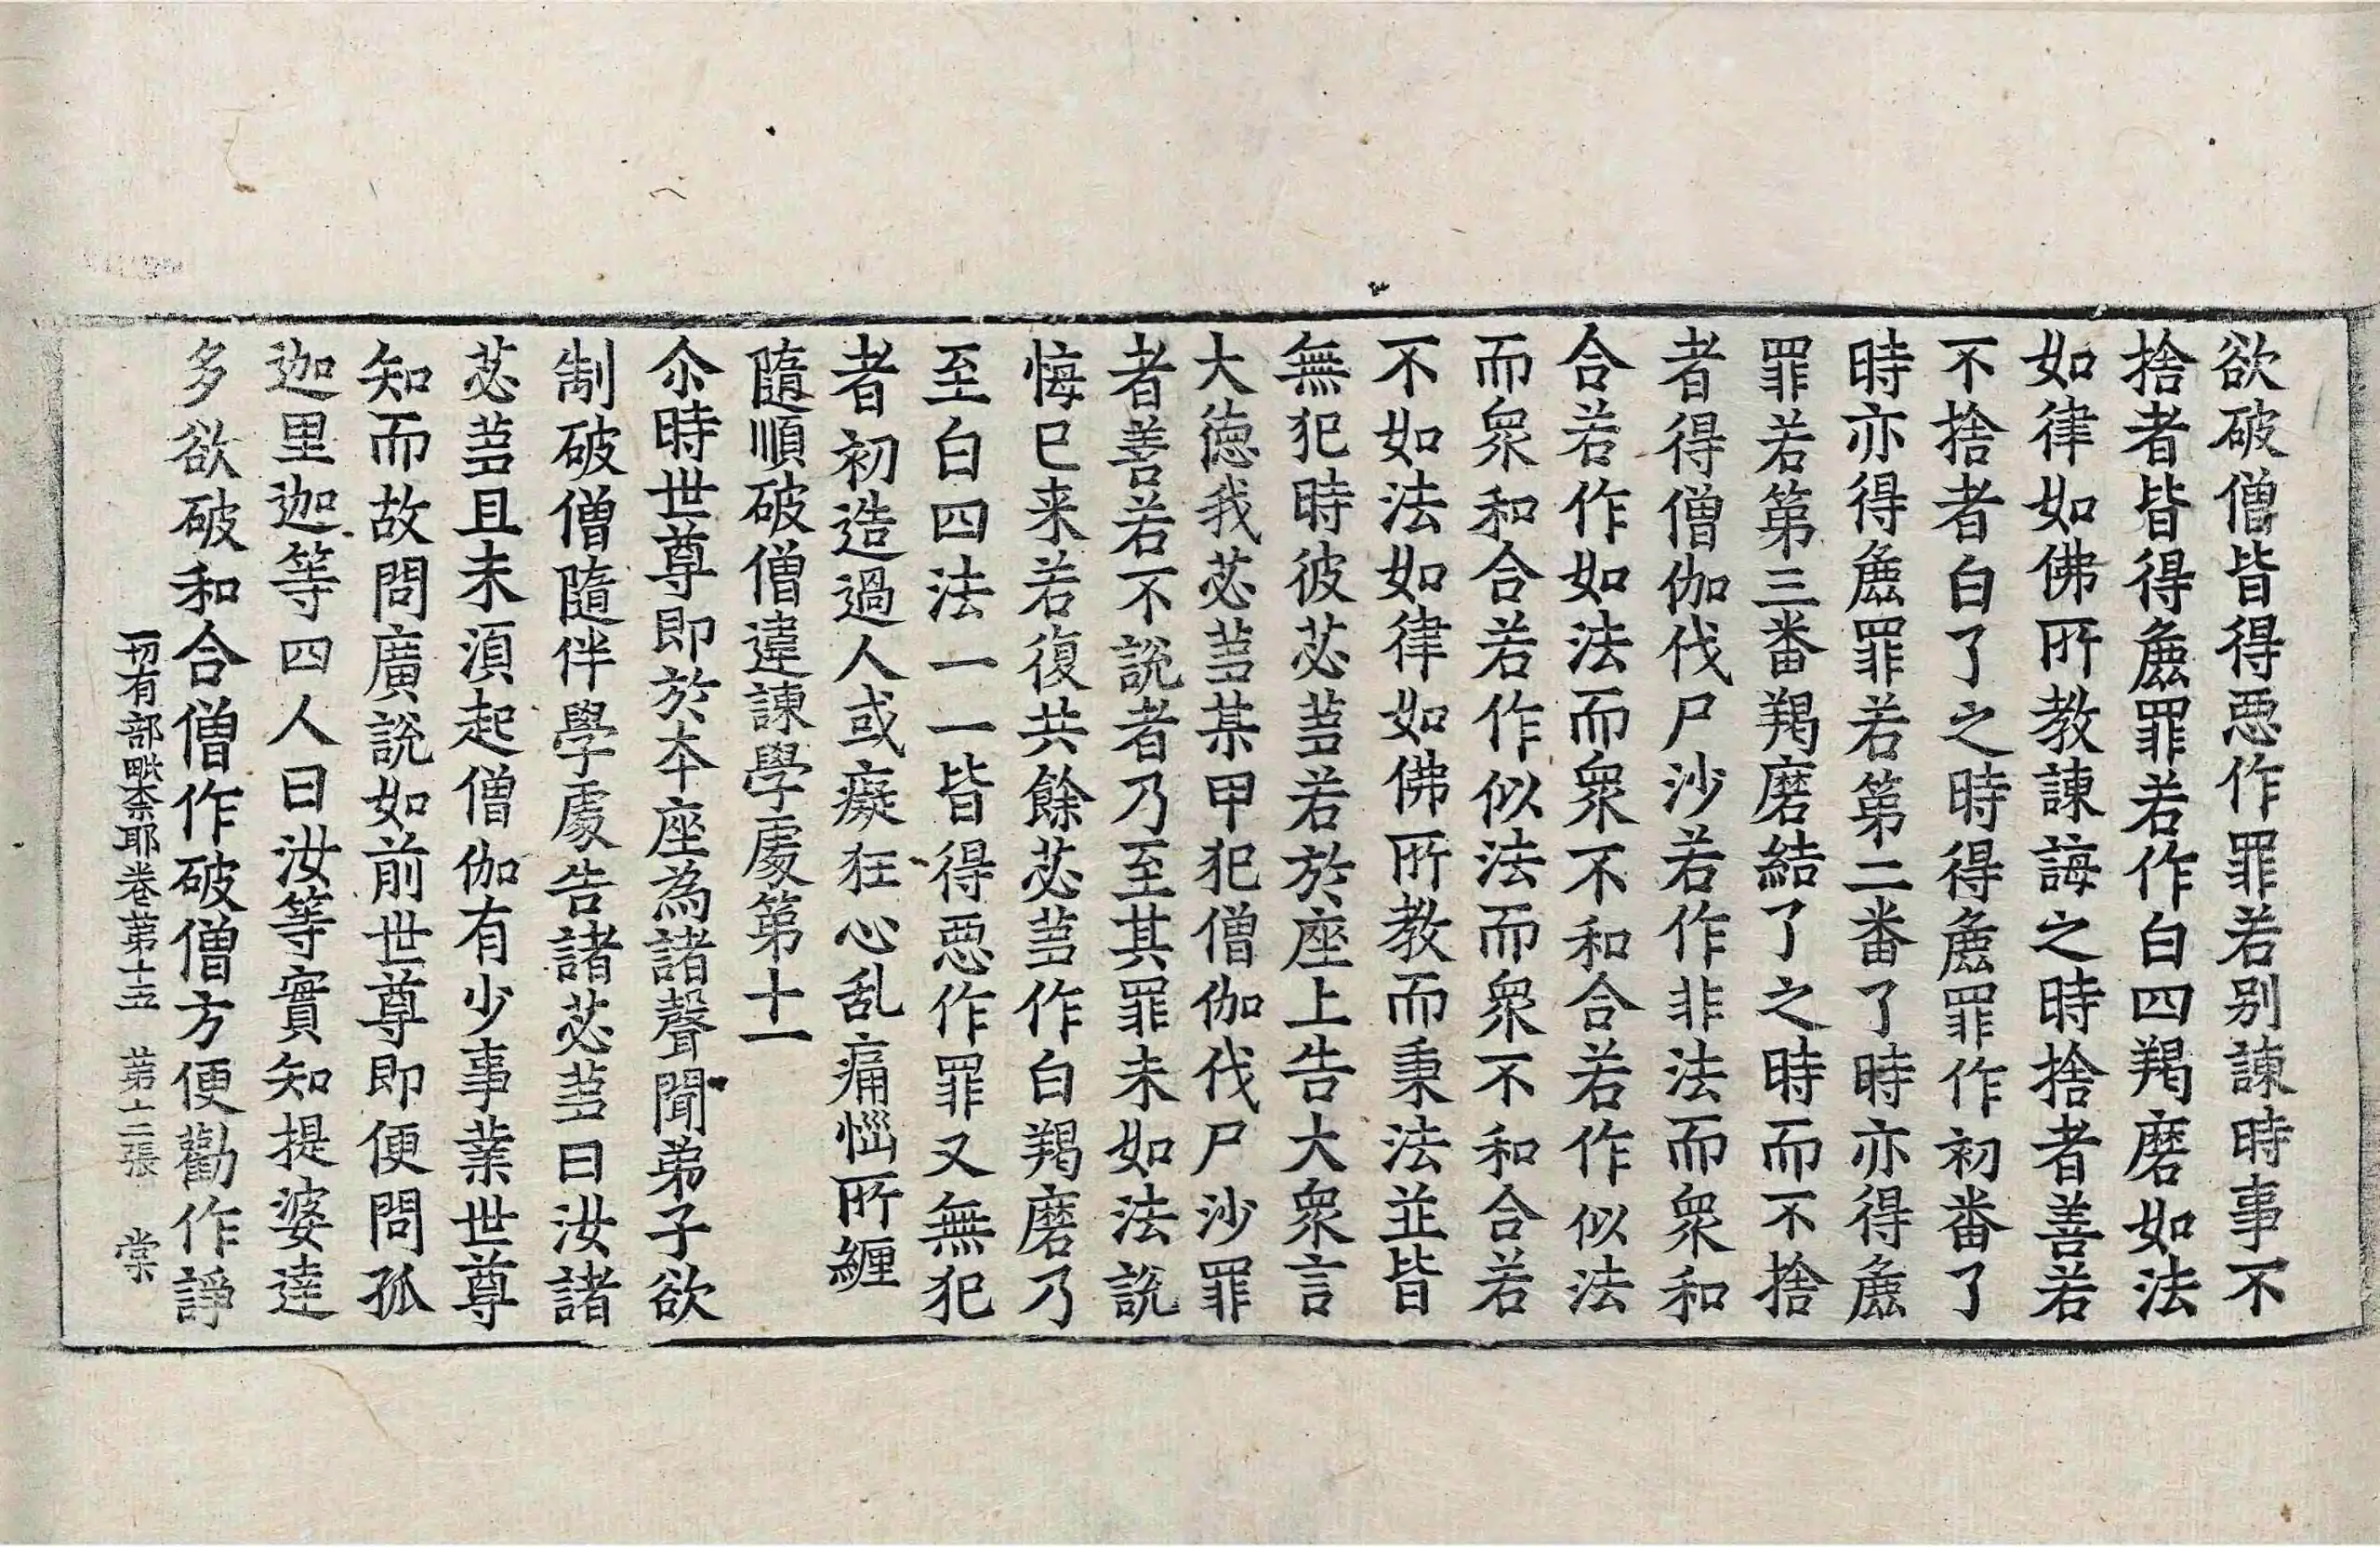 欲破僧皆得恶作罪若别諫時事不
捨者皆得麁罪若作白四羯磨如法
如律如佛所教諫誨之時捨者善若
不捨者白了之時得麁罪作初番了
時亦得麁罪若第二番了時亦得麁
罪若第三番羯磨結了之時而不捨
者得僧伽伐尸沙若作非法而衆和
合若作如法而衆不和合若作似法
而衆和合若作似法而衆不和合若
不如法如律如佛所教而秉法並皆
無犯時彼苾蒭若於座上告大衆言
大德我苾蒭某甲犯僧伽伐尸沙罪
者善若不說者乃至其罪未如法說
悔已来若復共餘苾蒭作白羯磨乃
至白四法一一皆得恶作罪又無犯
者初造過人或癡狂心乱痛惱所纏
隨順破僧違諫學處第十一
尒時世尊即於本座為諸聲聞弟子欲
制破僧隨伴學處告諸苾蒭曰汝諸
苾蒭且未須起僧伽有少事業世尊
知而故問廣說如前世尊即便問孤
迦里迦等四人曰汝等實知提婆達
多欲破和合僧作破僧方便勸作諍
一切有部毗奈耶卷第十五 第十二張 棠